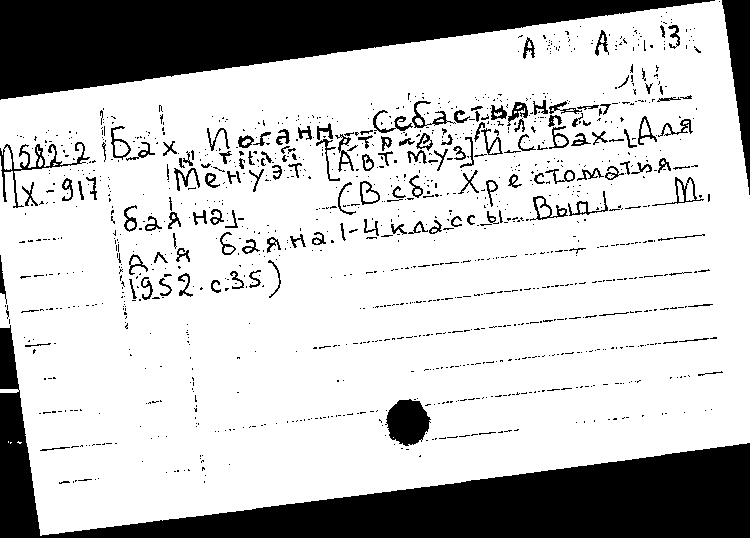 А 13
1И
Бах Иоганн Себастьян
П582-2
Х-917
Менуэт. [Авт. муз] И. С. Бах. [Для
баяна].
(В сб.: Хрестоматия
для баяна. 1-4 классы. Вып 1. М.,
1952. с.35.)